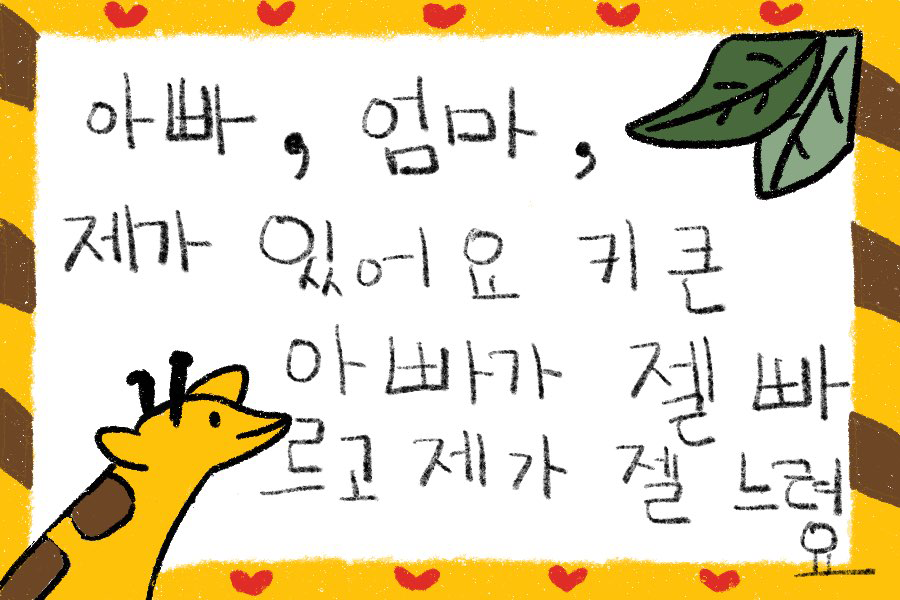 아빠, 엄마,
제가 있어요 키 큰
아빠가 젤 빠
르고 제가 젤 느려
요